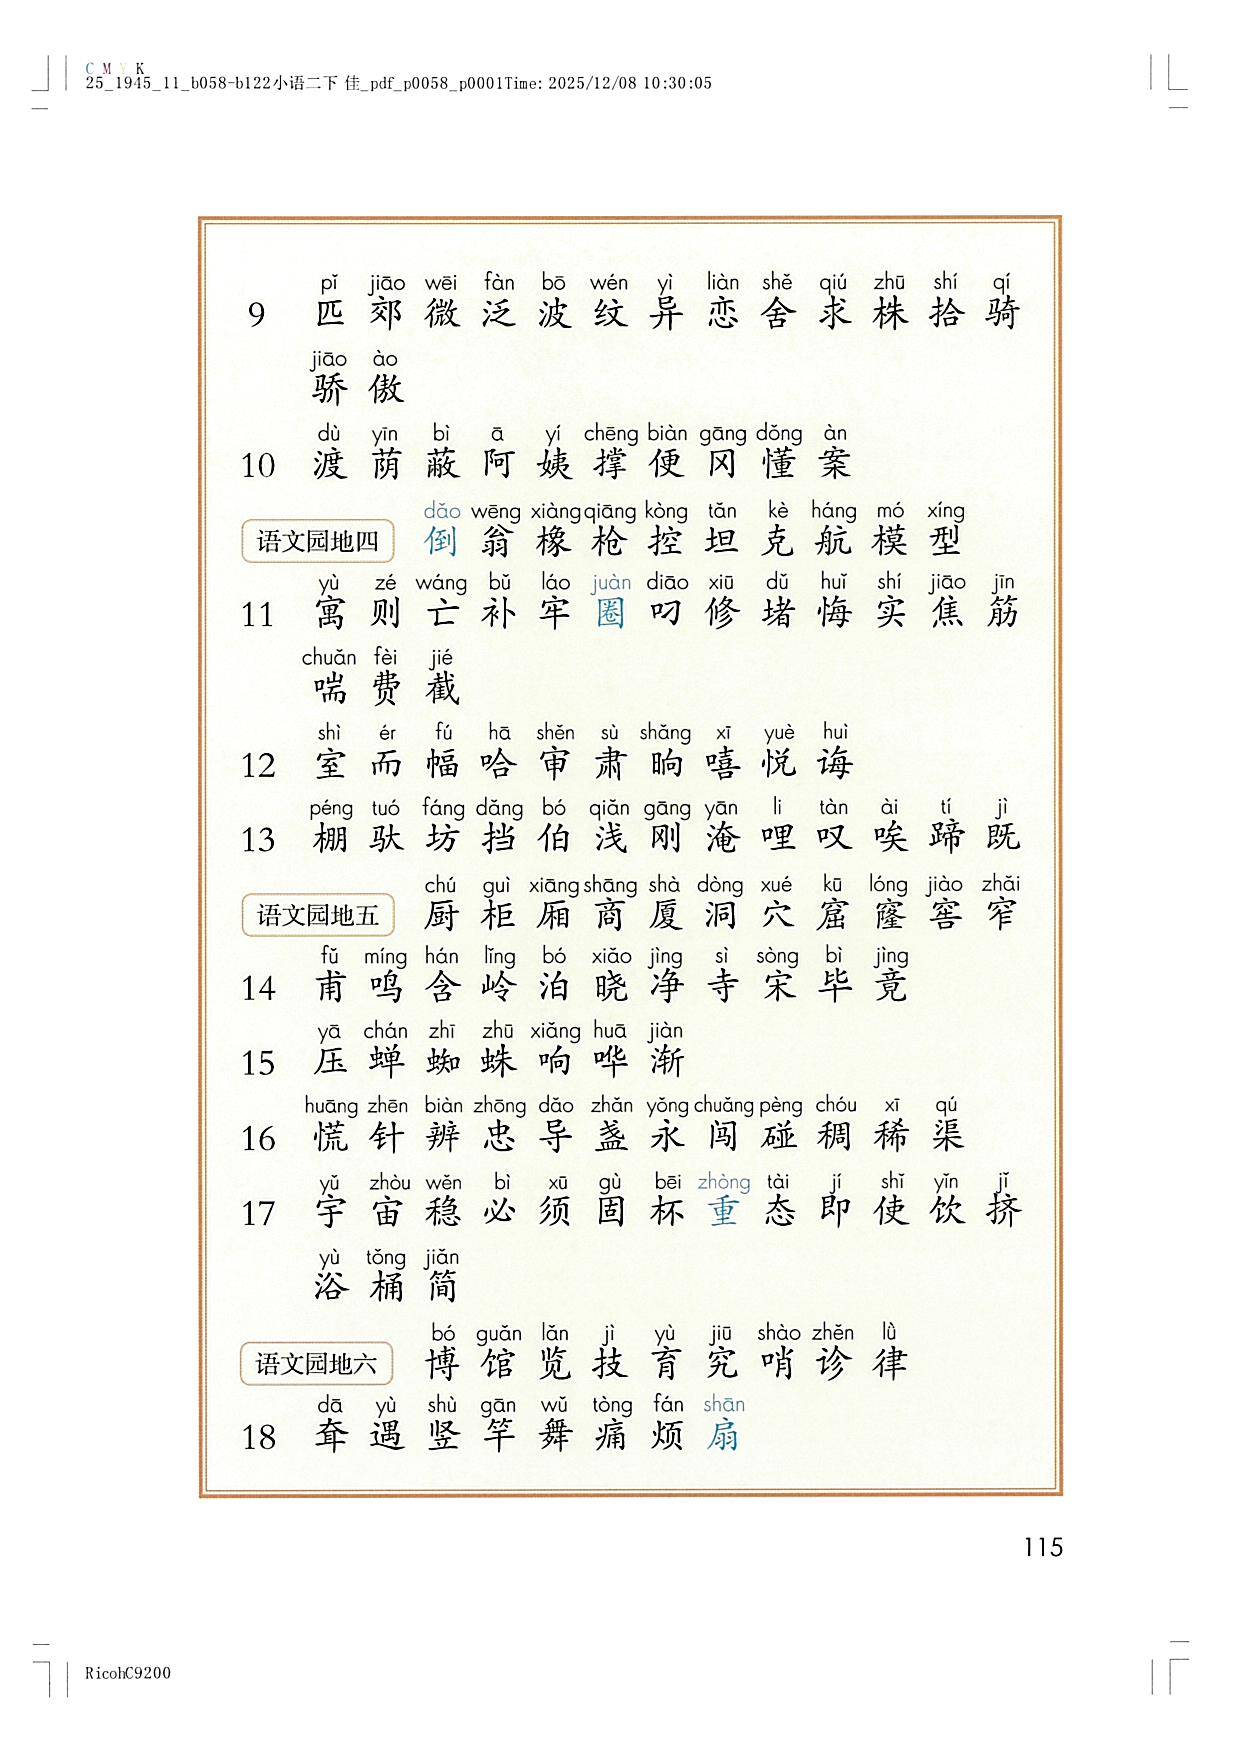 C M Y K
25_1945_11_b058-b122小语二下 佳_pdf_p0058_p0001Time: 2025/12/08 10:30:05
pǐ jiāo wēi fàn bō wén yì liàn shě qiú zhū shí qí
9 匹 郊 微 泛 波 纹 异 恋 舍 求 株 拾 骑
jiāo ào
骄 傲
dù yīn bì ā yí chēng biàn gāng dǒng àn
10 渡 荫 蔽 阿 姨 撑 便 冈 懂 案
dǎo wēng xiàng qiāng kòng tǎn kè háng mó xíng
语文园地四 倒 翁 橡 枪 控 坦 克 航 模 型
yù zé wáng bǔ láo juàn diāo xiū dǔ huǐ shí jiāo jīn
11 寓 则 亡 补 牢 圈 叼 修 堵 悔 实 焦 筋
chuǎn fèi jié
喘 费 截
shì ér fú hā shěn sù shǎng xī yuè huì
12 室 而 幅 哈 审 肃 晌 嘻 悦 诲
péng tuó fáng dǎng bó qiǎn gāng yān li tàn ài tí jì
13 棚 驮 坊 挡 伯 浅 刚 淹 哩 叹 唉 蹄 既
chú guì xiāng shāng shà dòng xué kū lóng jiào zhǎi
语文园地五 厨 柜 厢 商 厦 洞 穴 窟 窿 窖 窄
fǔ míng hán lǐng bó xiǎo jìng sì sòng bì jìng
14 甫 鸣 含 岭 泊 晓 净 寺 宋 毕 竟
yā chán zhī zhū xiǎng huā jiàn
15 压 蝉 蜘 蛛 响 哗 渐
huāng zhēn biàn zhōng dǎo zhǎn yǒng chuǎng pèng chóu xī qú
16 慌 针 辨 忠 导 盏 永 闯 碰 稠 稀 渠
yǔ zhòu wěn bì xū gù bēi zhòng tài jí shǐ yǐn jǐ
17 宇 宙 稳 必 须 固 杯 重 态 即 使 饮 挤
yù tǒng jiǎn
浴 桶 简
bó guǎn lǎn jì yù jiū shào zhěn lǜ
语文园地六 博 馆 览 技 育 究 哨 诊 律
dā yù shù gān wǔ tòng fán shān
18 耷 遇 竖 竿 舞 痛 烦 扇
115
RicohC9200